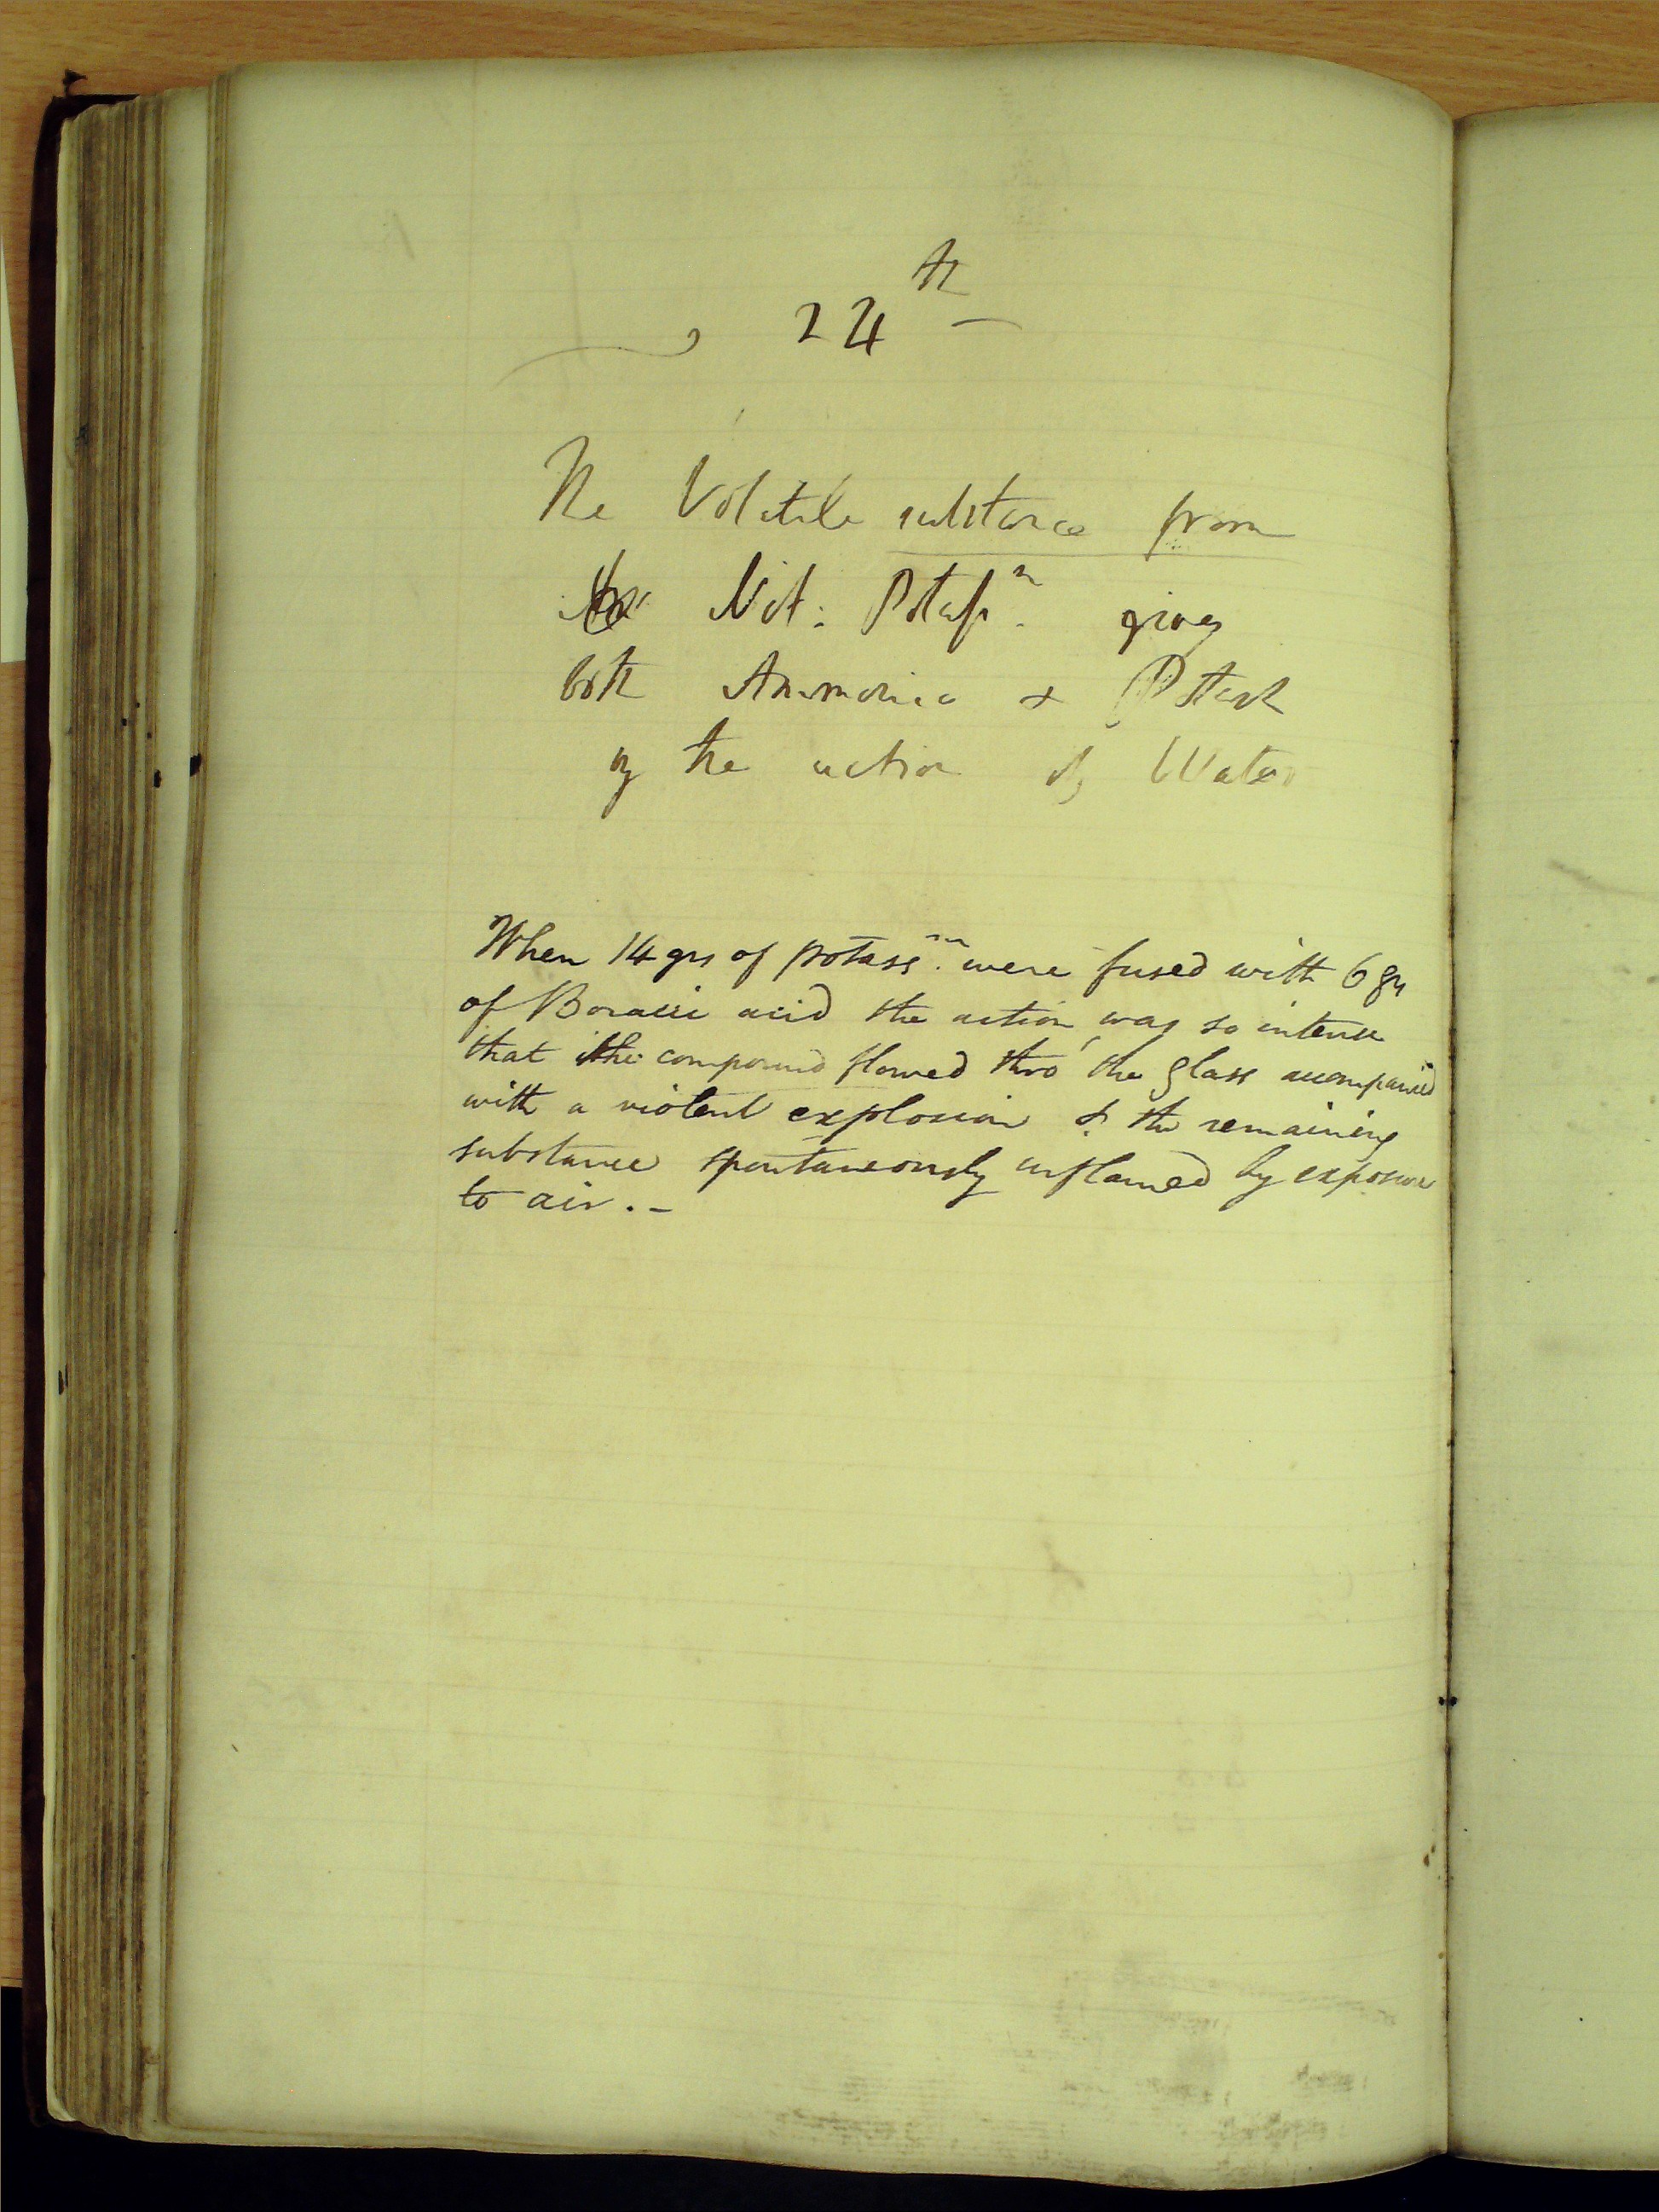 24th
The Volatile substance from
the Nit: Potassm. gives
both Ammonia & Potash
by the action of Water
When 14 grs of potassm. were fused with 6 grs
of Boracic acid the action was so intense
that the compound flowed thro' the glass accompanied
with a violent explosion & the remaining
substance spontaneously inflamed by exposure
to air.-